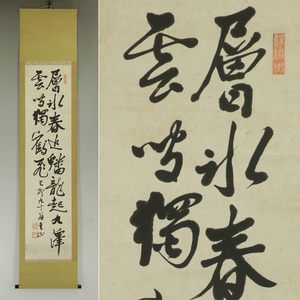 層氷春近蟠龍起九澤
雲閒獨鶴飛
層氷春
雲閒獨